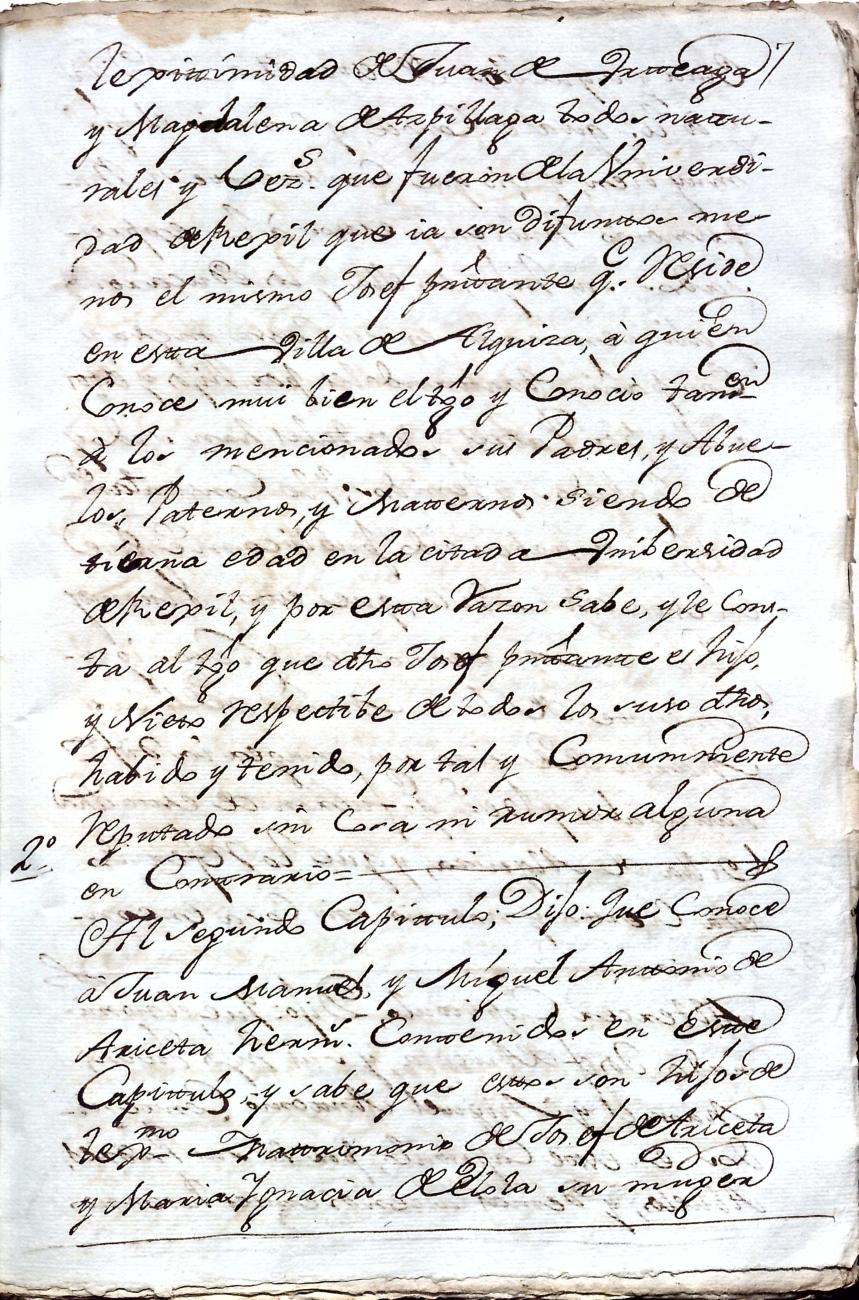 7
lexitimidad de Juan de Irtoeaga
y Magdalena de Azpillaga todos natu-
rales y Vezs. que fueron de la Vniversi-
dad de Rexil que ia son difuntos me-
nos el mismo Josef pntante q.e Reside
en esta Villa de Alquiza, à quien
Conoce mui bien el tgo y Conocio tamien
à los mencionados sus Padres, y Abue-
los, Paternos, y Maternos siendo de
tierna edad en la citada Vnibersidad
de Rexil, y por esta Razon Sabe, y le Cons-
ta al tgo que dho Josef pntante es hijo,
y Nieto Respectibe de todos los suso dhos,
habido y tenido, por tal y Comunmente
Reputado sin Cosa ni rumor alguna
en Contrario=
2º
Al segundo Capitulo; Dijo: Que Conoce
à Juan Manuel, y Miguel Antonio de
Ariceta herms. Contenidos en este
Capitulo, y sabe que estos son hijos de
lexmo Matrimonio de Josef de Ariceta
y Maria Ygnacia de Elola su muger